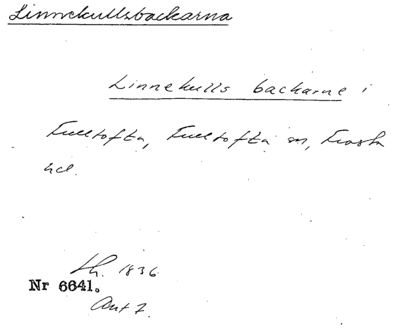 Linnekullsbackarna
Linnekulls backarne i
Fulltofta, Fulltofta sn, Frosta
hd.
Lh. 1836.
Nr 6641.
Ant 7.